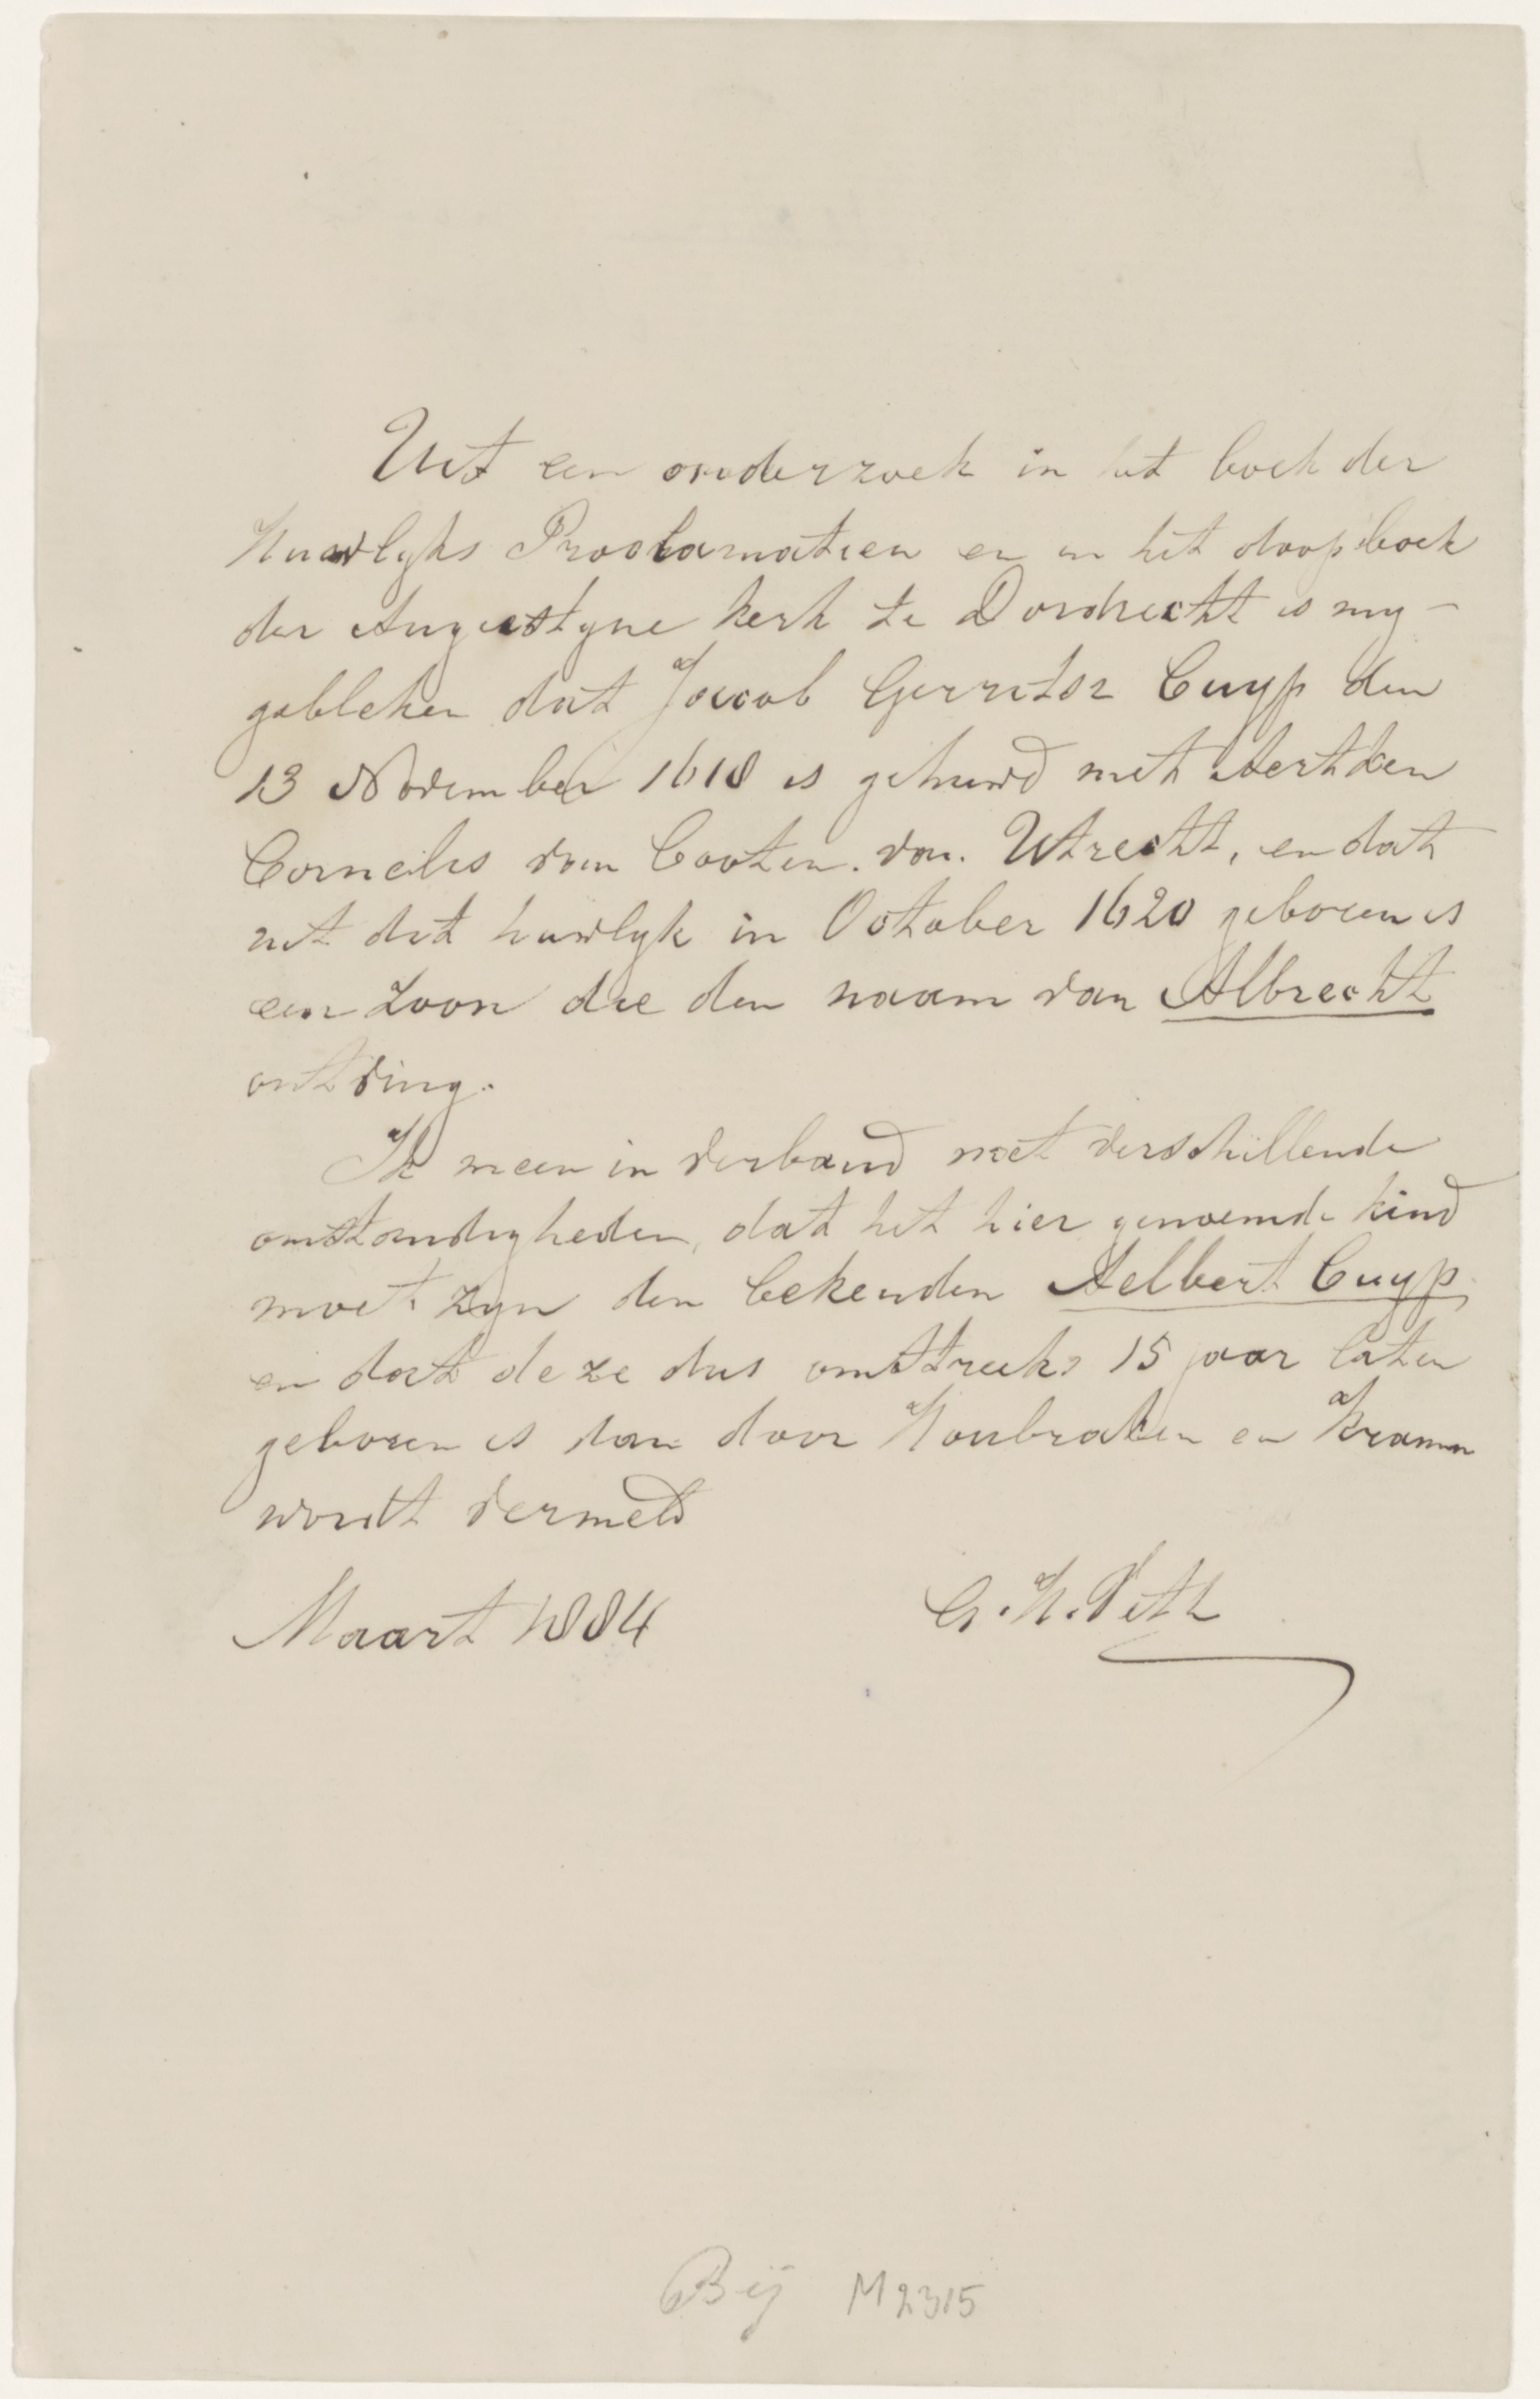 Uit een onderzoek in het boek der
Huwlyks Proclamatien en in het doopboek
der Augustyne kerk te Dordrecht is my –
gebleken dat Jacob Gerritsz Cuyp den
13 November 1618 is gehuwd met Aertken
Cornelis van Cooten. van. Utrecht, en dat
uit dit huwlyk in October 1620 geboren is
een zoon die den naam van Albrecht
ontving.
Ik meen in verband met verschillende
omstandigheden, dat het hier genoemde kind
moet zyn den bekenden Aelbert Cuyp
en dat deze dus omstreeks 15 jaar later
geboren is dan door Houbraken en Kramm
wordt vermeld
Maart 1884 G. H. Veth
Bij M 2315